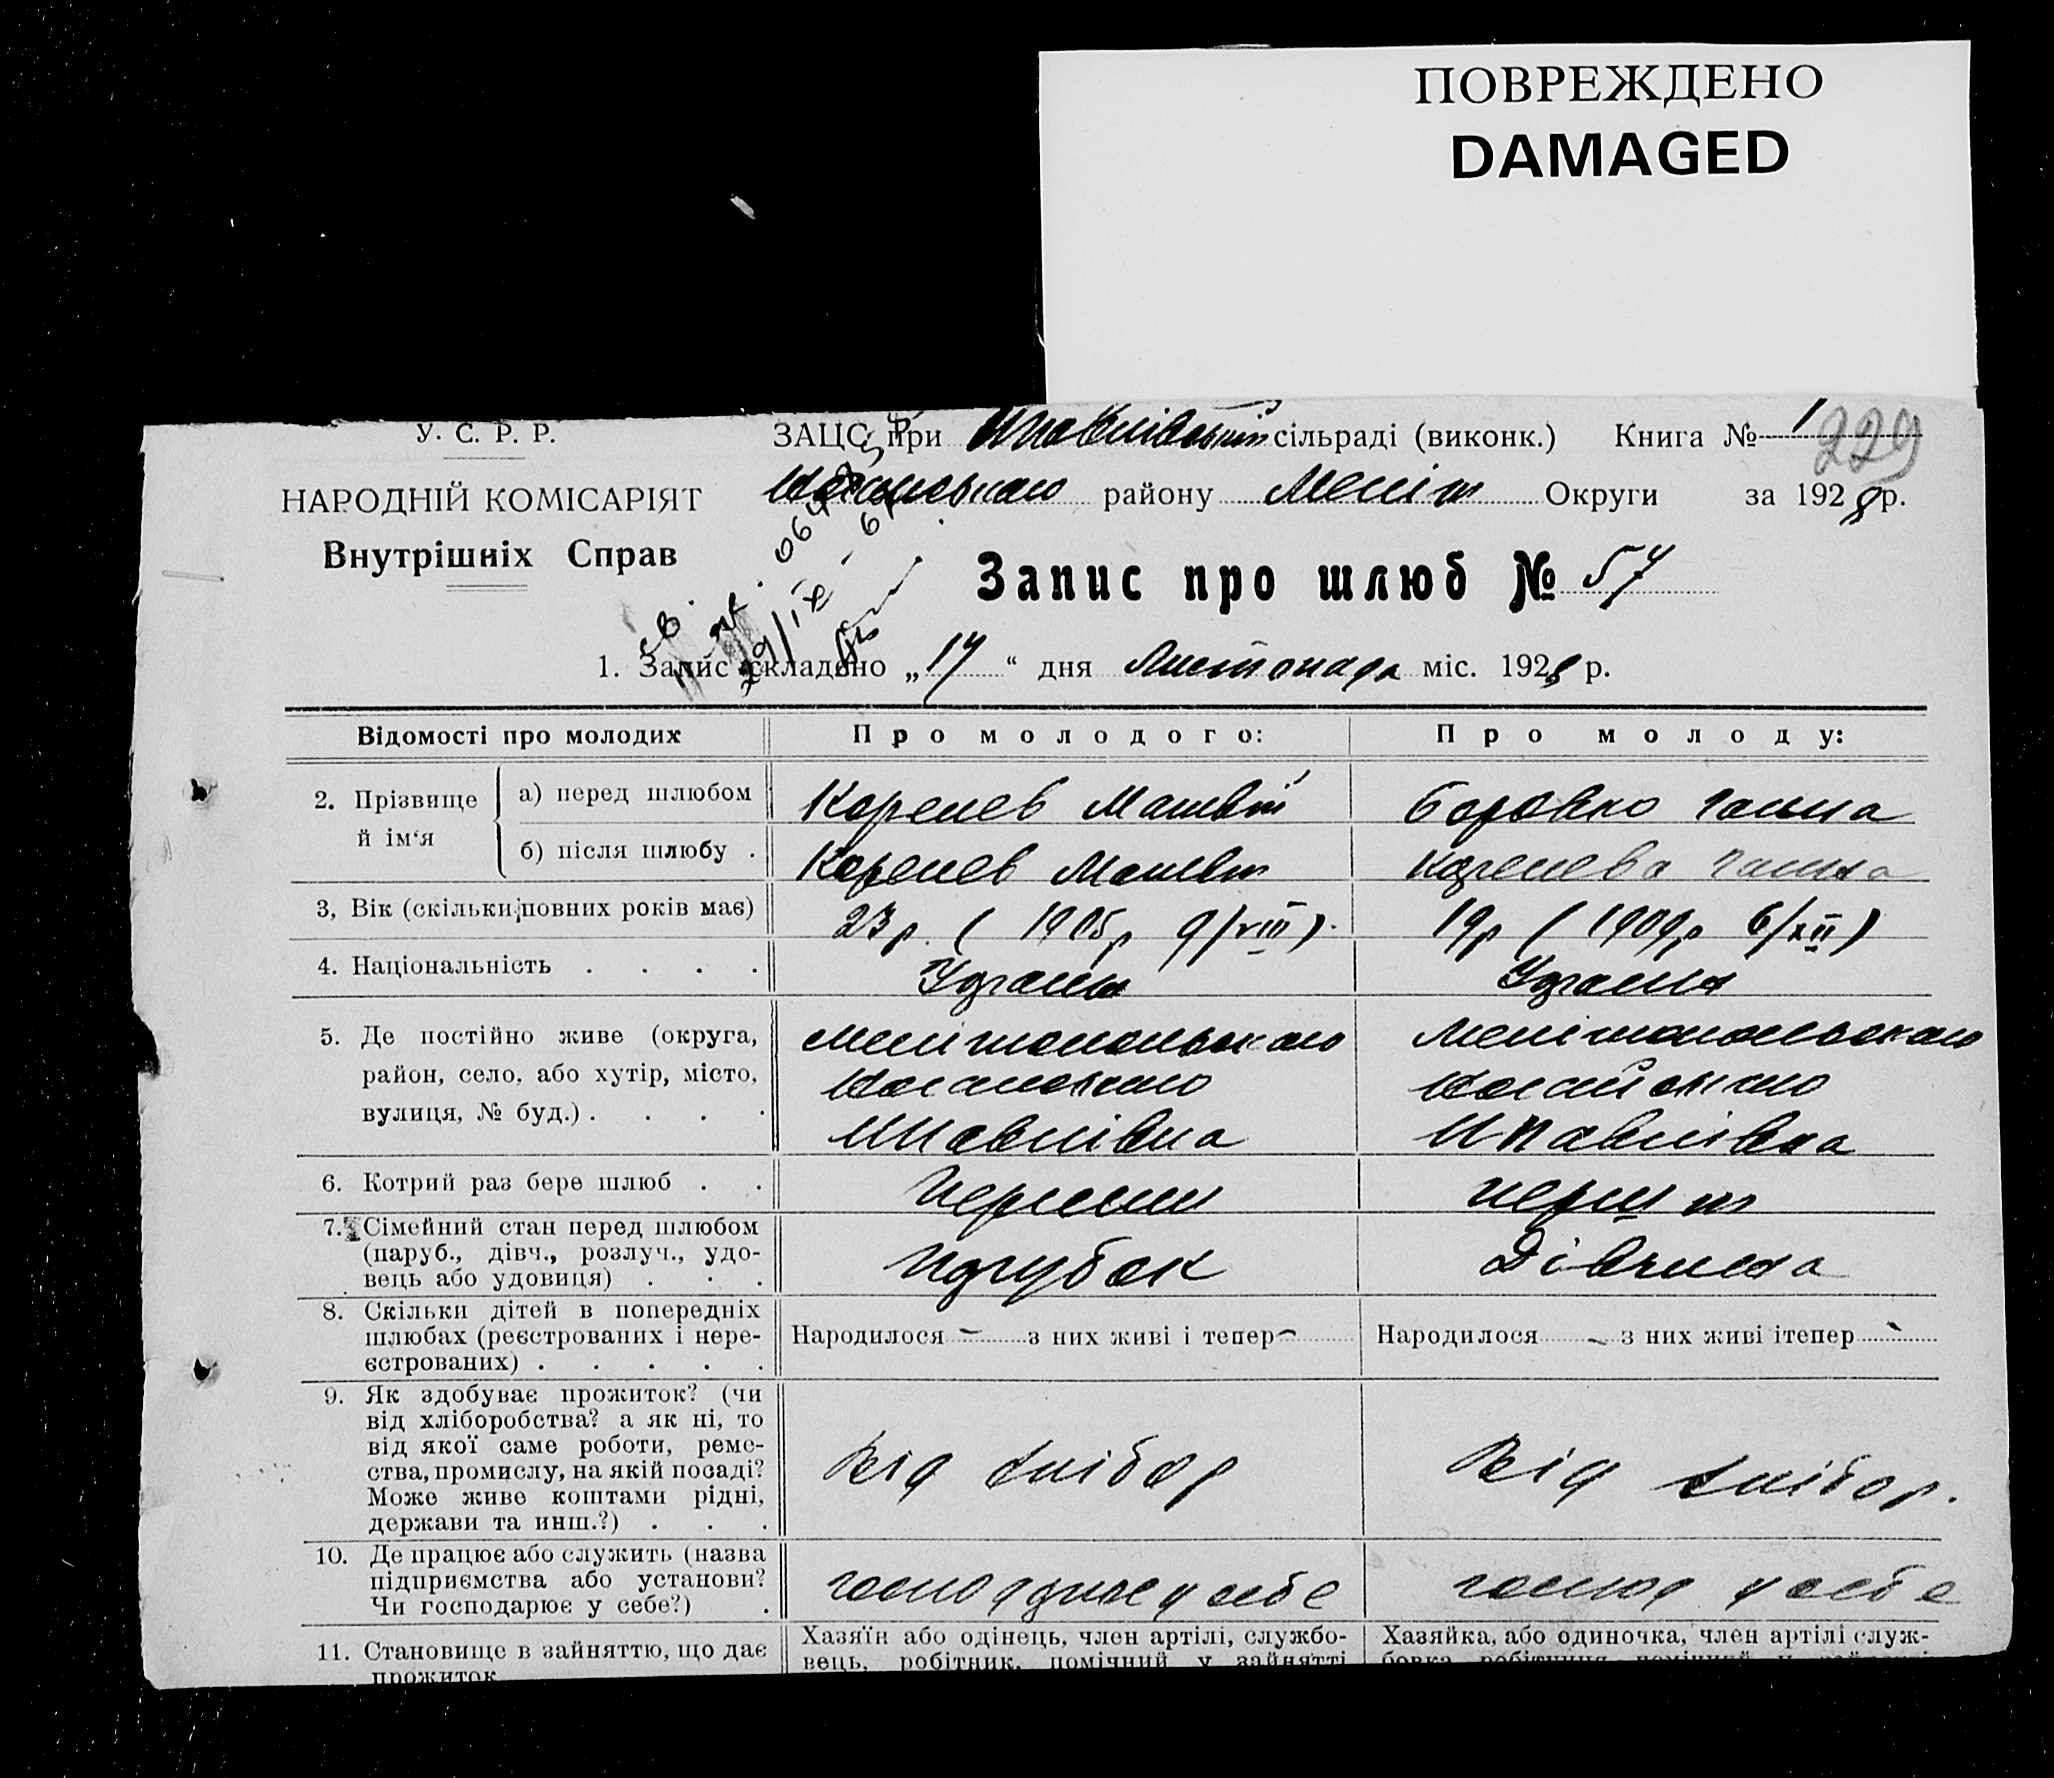 ПОВРЕЖДЕНО
DAMAGED
У. С. Р. Р.
НАРОДНІЙ КОМІСАРІЯТ
Внутрішніх Справ
ЗАЦС при сільраді (виконк.) Книга № 1
229
району Меліт Округи за 1928 р.
Запис про шлюб № 57
1. Запис складено „17“ дня Листопада міс. 1928 р.
Відомості про молодих
Про молодого:
Про молоду:
2. Прізвище й ім‘я
а) перед шлюбом
Коренев Матвій
Боровко Ганна
б) після шлюбу .
Коренев Матвій
Коренева Ганна
3, Вік (скільки повних років має)
23 р. ( 1905 р 9/VIII).
19 р ( 1909 р 6/XII)
4. Національність . . . .
Украин
Украин
5. Де постійно живе (округа,
район, село, або хутір, місто,
вулиця, № буд.) . . . .
Мелітопольского
Мелітопольского
6. Котрий раз бере шлюб . .
Перший
перший
7. Сімейний стан перед шлюбом
(паруб., дівч., розлуч., удо-
вець або удовиця) . . .
Парубок
Дівчина
8. Скільки дітей в попередніх
шлюбах (реєстрованих і нере-
єстрованих) . . . . .
Народилося - з них живі і тепер -
Народилося - з них живі ітепер -
9. Як здобуває прожиток? (чи
від хліборобства? а як ні, то
від якої саме роботи, реме-
ства, промислу, на якій посаді?
Може живе коштами рідні,
держави та инш.?) . . .
Від хлібор
Від хлібор.
10. Де працює або служить (назва
підприємства або установи?
Чи господарює у себе?) .
господарює у себе
господ у себе
11. Становище в зайняттю, що дає
прожиток
Хазяїн або одінець, член артілі, службо-
вець, робітник, помічний у зайнятті
Хазяйка, або одиночка, член артілі служ-
бовка робітниця